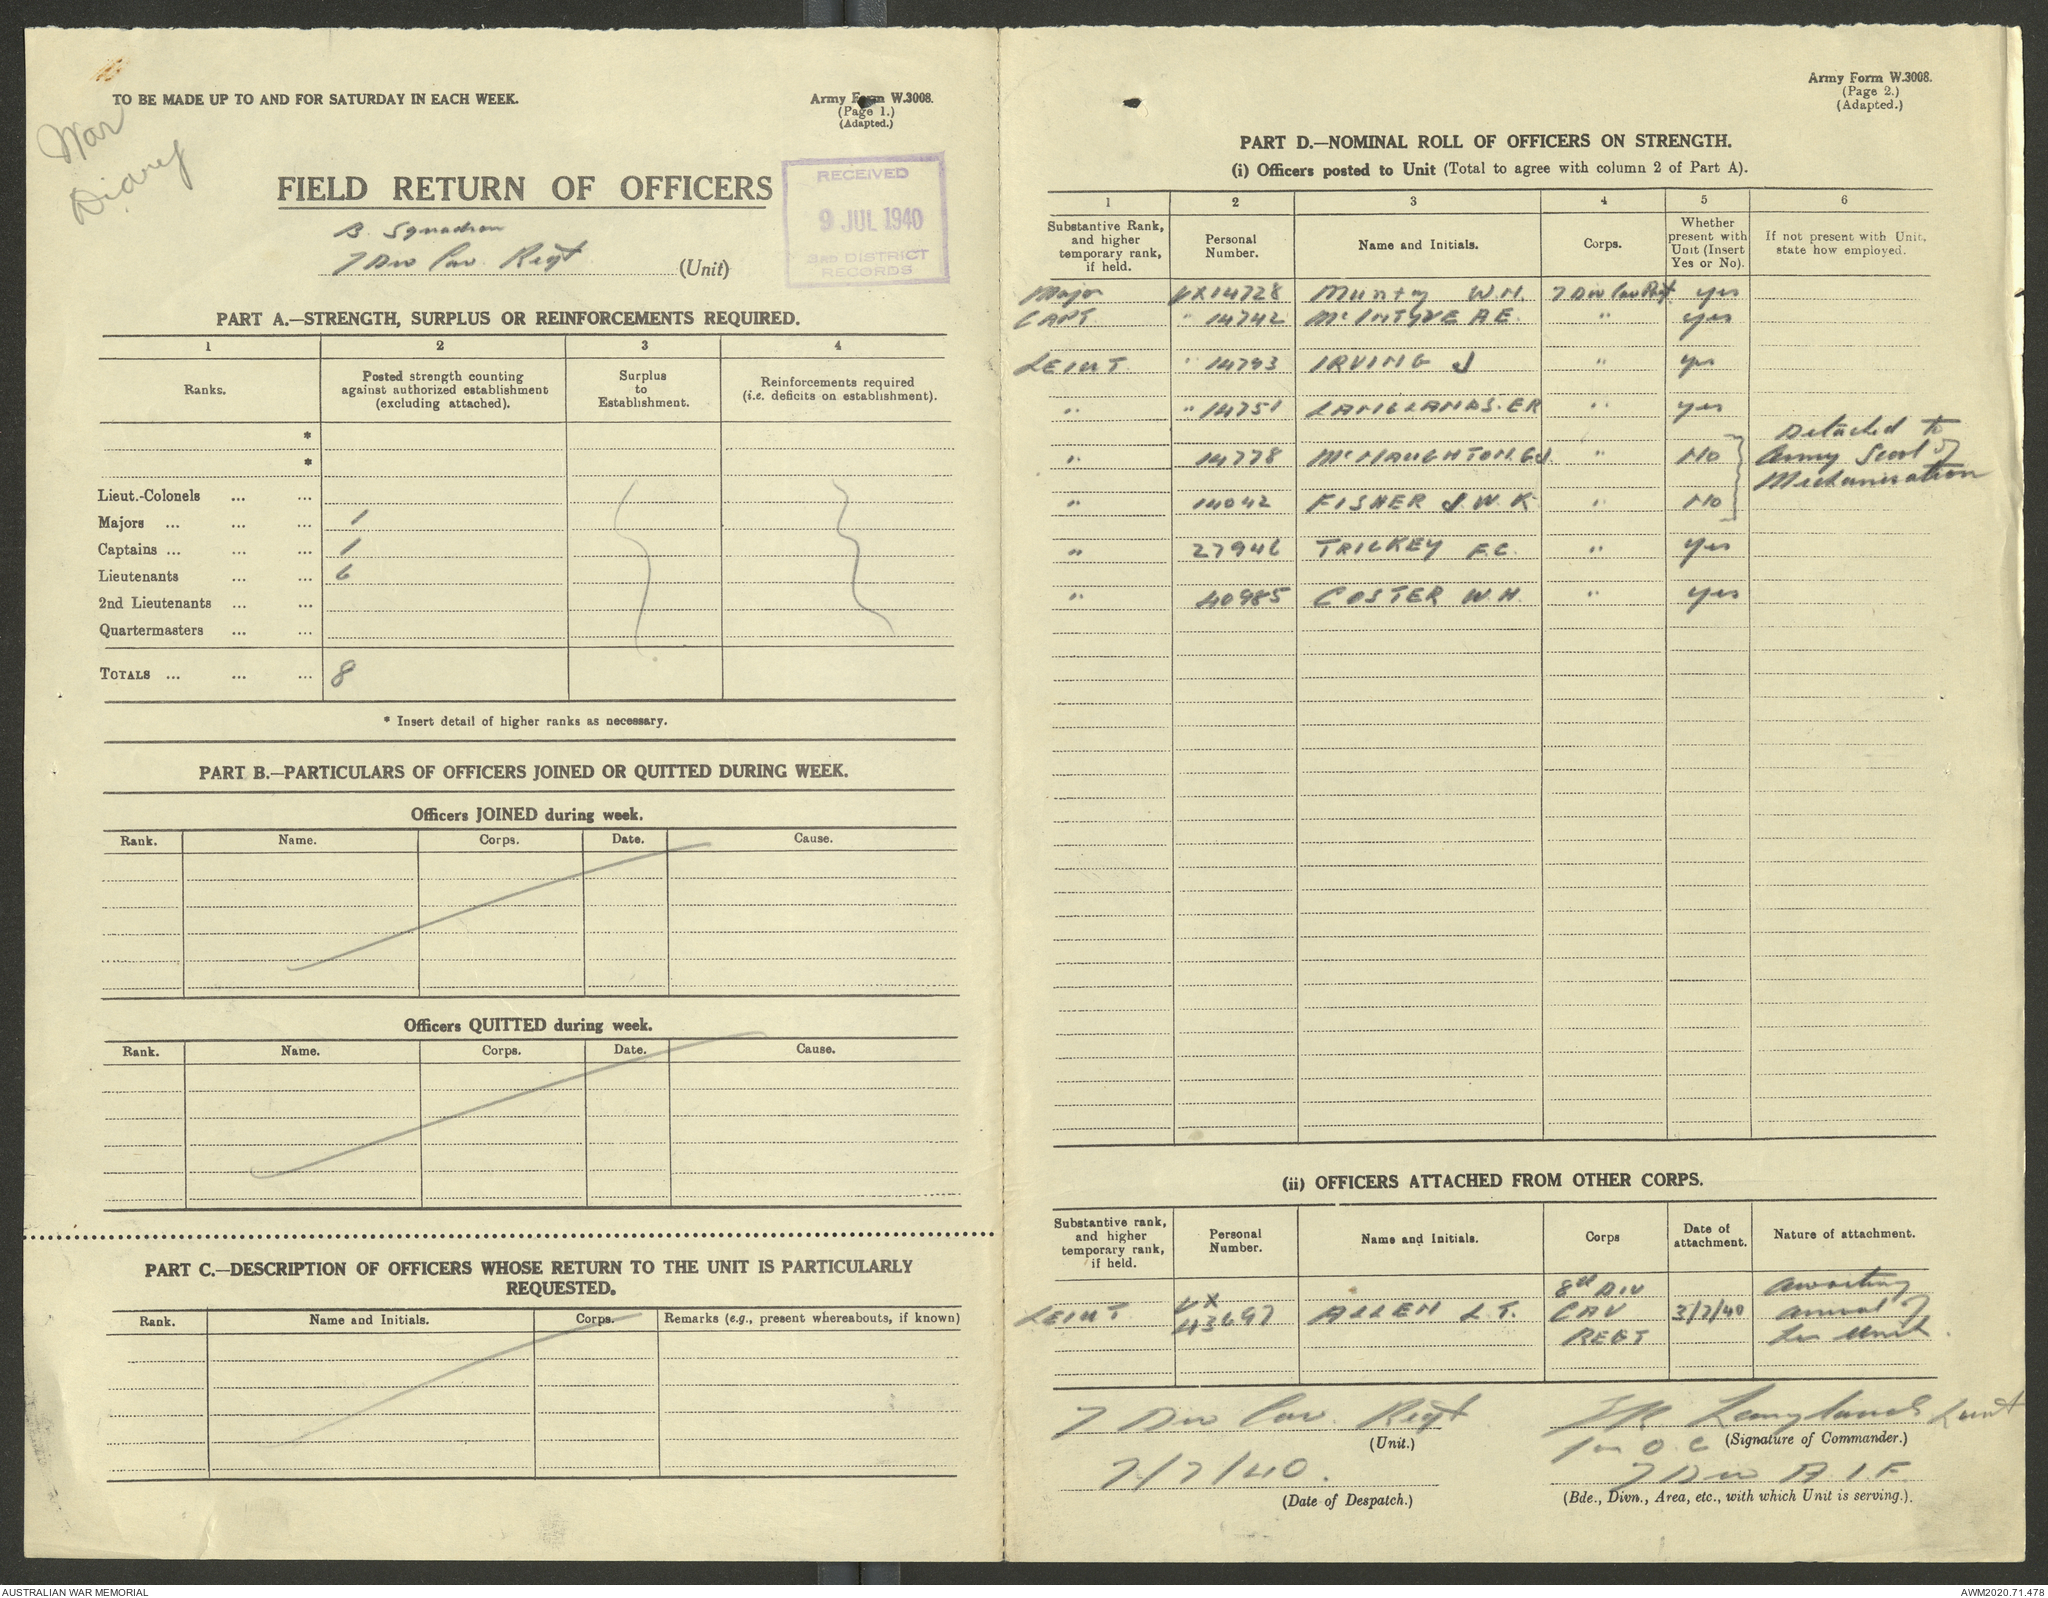 War
Diary
TO BE MADE UP TO AND FOR SATURDAY IN EACH WEEK.
Army Form W.3008.
(Page 1.)
(Adapted.)
FIELD RETURN OF OFFICERS
RECEIVED
9 JUL 1940
3RD DISTRICT
RECORDS
B. Squadron
7 Div Cav. Regt (Unit)
PART A.—STRENGTH, SURPLUS OR REINFORCEMENTS REQUIRED.
1 2 3 4
Ranks. Posted strength counting against authorized establishment (excluding attached). Surplus to Establishment. Reinforcements required (i.e. deficits on establishment).
*
*
Lieut.-Colonels ... ...
Majors ... ... ... 1
Captains ... ... ... 1
Lieutenants ... ... 6
2nd Lieutenants ... ...
Quartermasters ... ...
TOTALS ... ... ... 8
* Insert detail of higher ranks as necessary.
PART B.—PARTICULARS OF OFFICERS JOINED OR QUITTED DURING WEEK.
Officers JOINED during week.
Rank. Name. Corps. Date. Cause.
Officers QUITTED during week.
Rank. Name. Corps. Date. Cause.
PART C.—DESCRIPTION OF OFFICERS WHOSE RETURN TO THE UNIT IS PARTICULARLY
REQUESTED.
Rank. Name and Initials. Corps. Remarks (e.g., present whereabouts, if known)
Army Form W.3008.
(Page 2.)
(Adapted.)
PART D.—NOMINAL ROLL OF OFFICERS ON STRENGTH.
(i) Officers posted to Unit (Total to agree with column 2 of Part A).
1 2 3 4 5 6
Substantive Rank, and higher temporary rank, if held. Personal Number. Name and Initials. Corps. Whether present with Unit (Insert Yes or No). If not present with Unit, state how employed.
Major VX14728 W.H. 7 Div Cav Regt yes
CAPT " 14742 McINTYRE A E. " yes
LEIUT. " 14793 IRVING J " yes
" " 14751 LANGLANDS. E R " yes
" 14778 McNAUGHTON. G J. " No Detached to
Army Scol of
Mechanisation
" 14042 FISHER J. W. K. " No
" 27946 TRICKEY F.C. " yes
" 40985 COSTER W.H. " yes
(ii) OFFICERS ATTACHED FROM OTHER CORPS.
Substantive rank, and higher temporary rank, if held. Personal Number. Name and Initials. Corps Date of attachment. Nature of attachment.
LEIUT. VX 43697 ALLEN L.T. 8th DIV CAV REGT 3/7/40 awaiting arrival of his Unit.
7 Div Cav. Regt
(Unit.)
7/7/40.
(Date of Despatch.)
ER Langlands Lieut
for O.C (Signature of Commander.)
7 Div A.I.F.
(Bde., Divn., Area, etc., with which Unit is serving.).
AUSTRALIAN WAR MEMORIAL
AWM2020.71.478